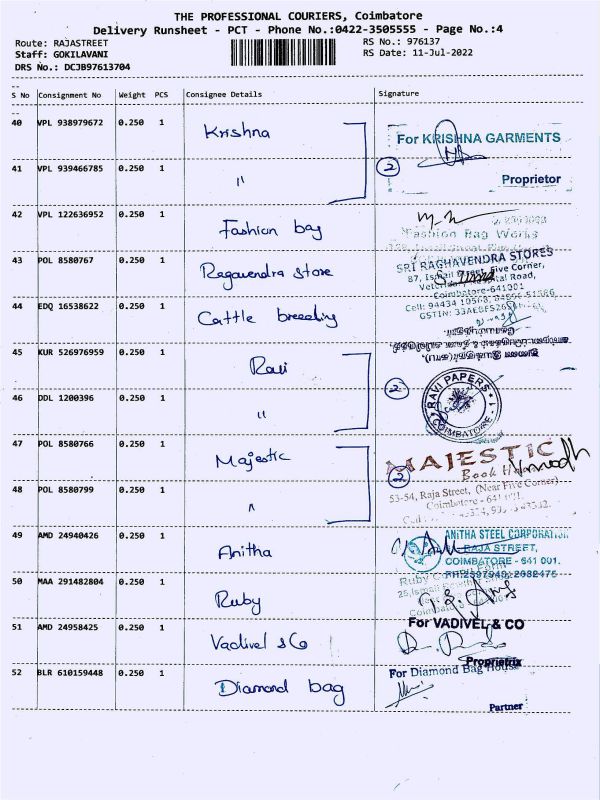 THE PROFESSIONAL COURIERS, Coimbatore
Delivery Runsheet - PCT - Phone No.:0422-3505555 - Page No.:4
Route: RAJASTREET
RS No.: 976137
Staff: GOKILAVANI
RS Date: 11-Jul-2022
DRS No.: DCJB97613704
S No Consignment No Weight PCS Consignee Details Signature
40 VPL 938979672 0.250 1 Krishna
For KRISHNA GARMENTS
41 VPL 939466785 0.250 1 "
2
Proprietor
42 VPL 122636952 0.250 1 Fashion bag
Fashion Bag Works
43 POL 8580767 0.250 1 Ragavendra Store
SRI RAGHAVENDRA STORES
87, Ismail Street, Five Corner,
Hospital Road,
Coimbatore-641001
44 EDQ 16538622 0.250 1 Cattle breeding
Cell: 94434
GSTIN:
45 KUR 526976959 0.250 1 Ravi
2
RAVI PAPERS
COIMBATORE - 1
46 DDL 1200396 0.250 1 "
47 POL 8580766 0.250 1 Majestic
MAJESTIC
Book House
2
48 POL 8580799 0.250 1 "
53-54, Raja Street, (Near Five Corner)
Coimbatore - 641 001.
49 AMD 24940426 0.250 1 Anitha
ANITHA STEEL CORPORATION
RAJA STREET,
COIMBATORE - 641 001.
50 MAA 291482804 0.250 1 Ruby
Ruby
51 AMD 24958425 0.250 1 Vadivel & Co
For VADIVEL & CO
Proprietrix
52 BLR 610159448 0.250 1 Diamond bag
For Diamond Bag House
Partner